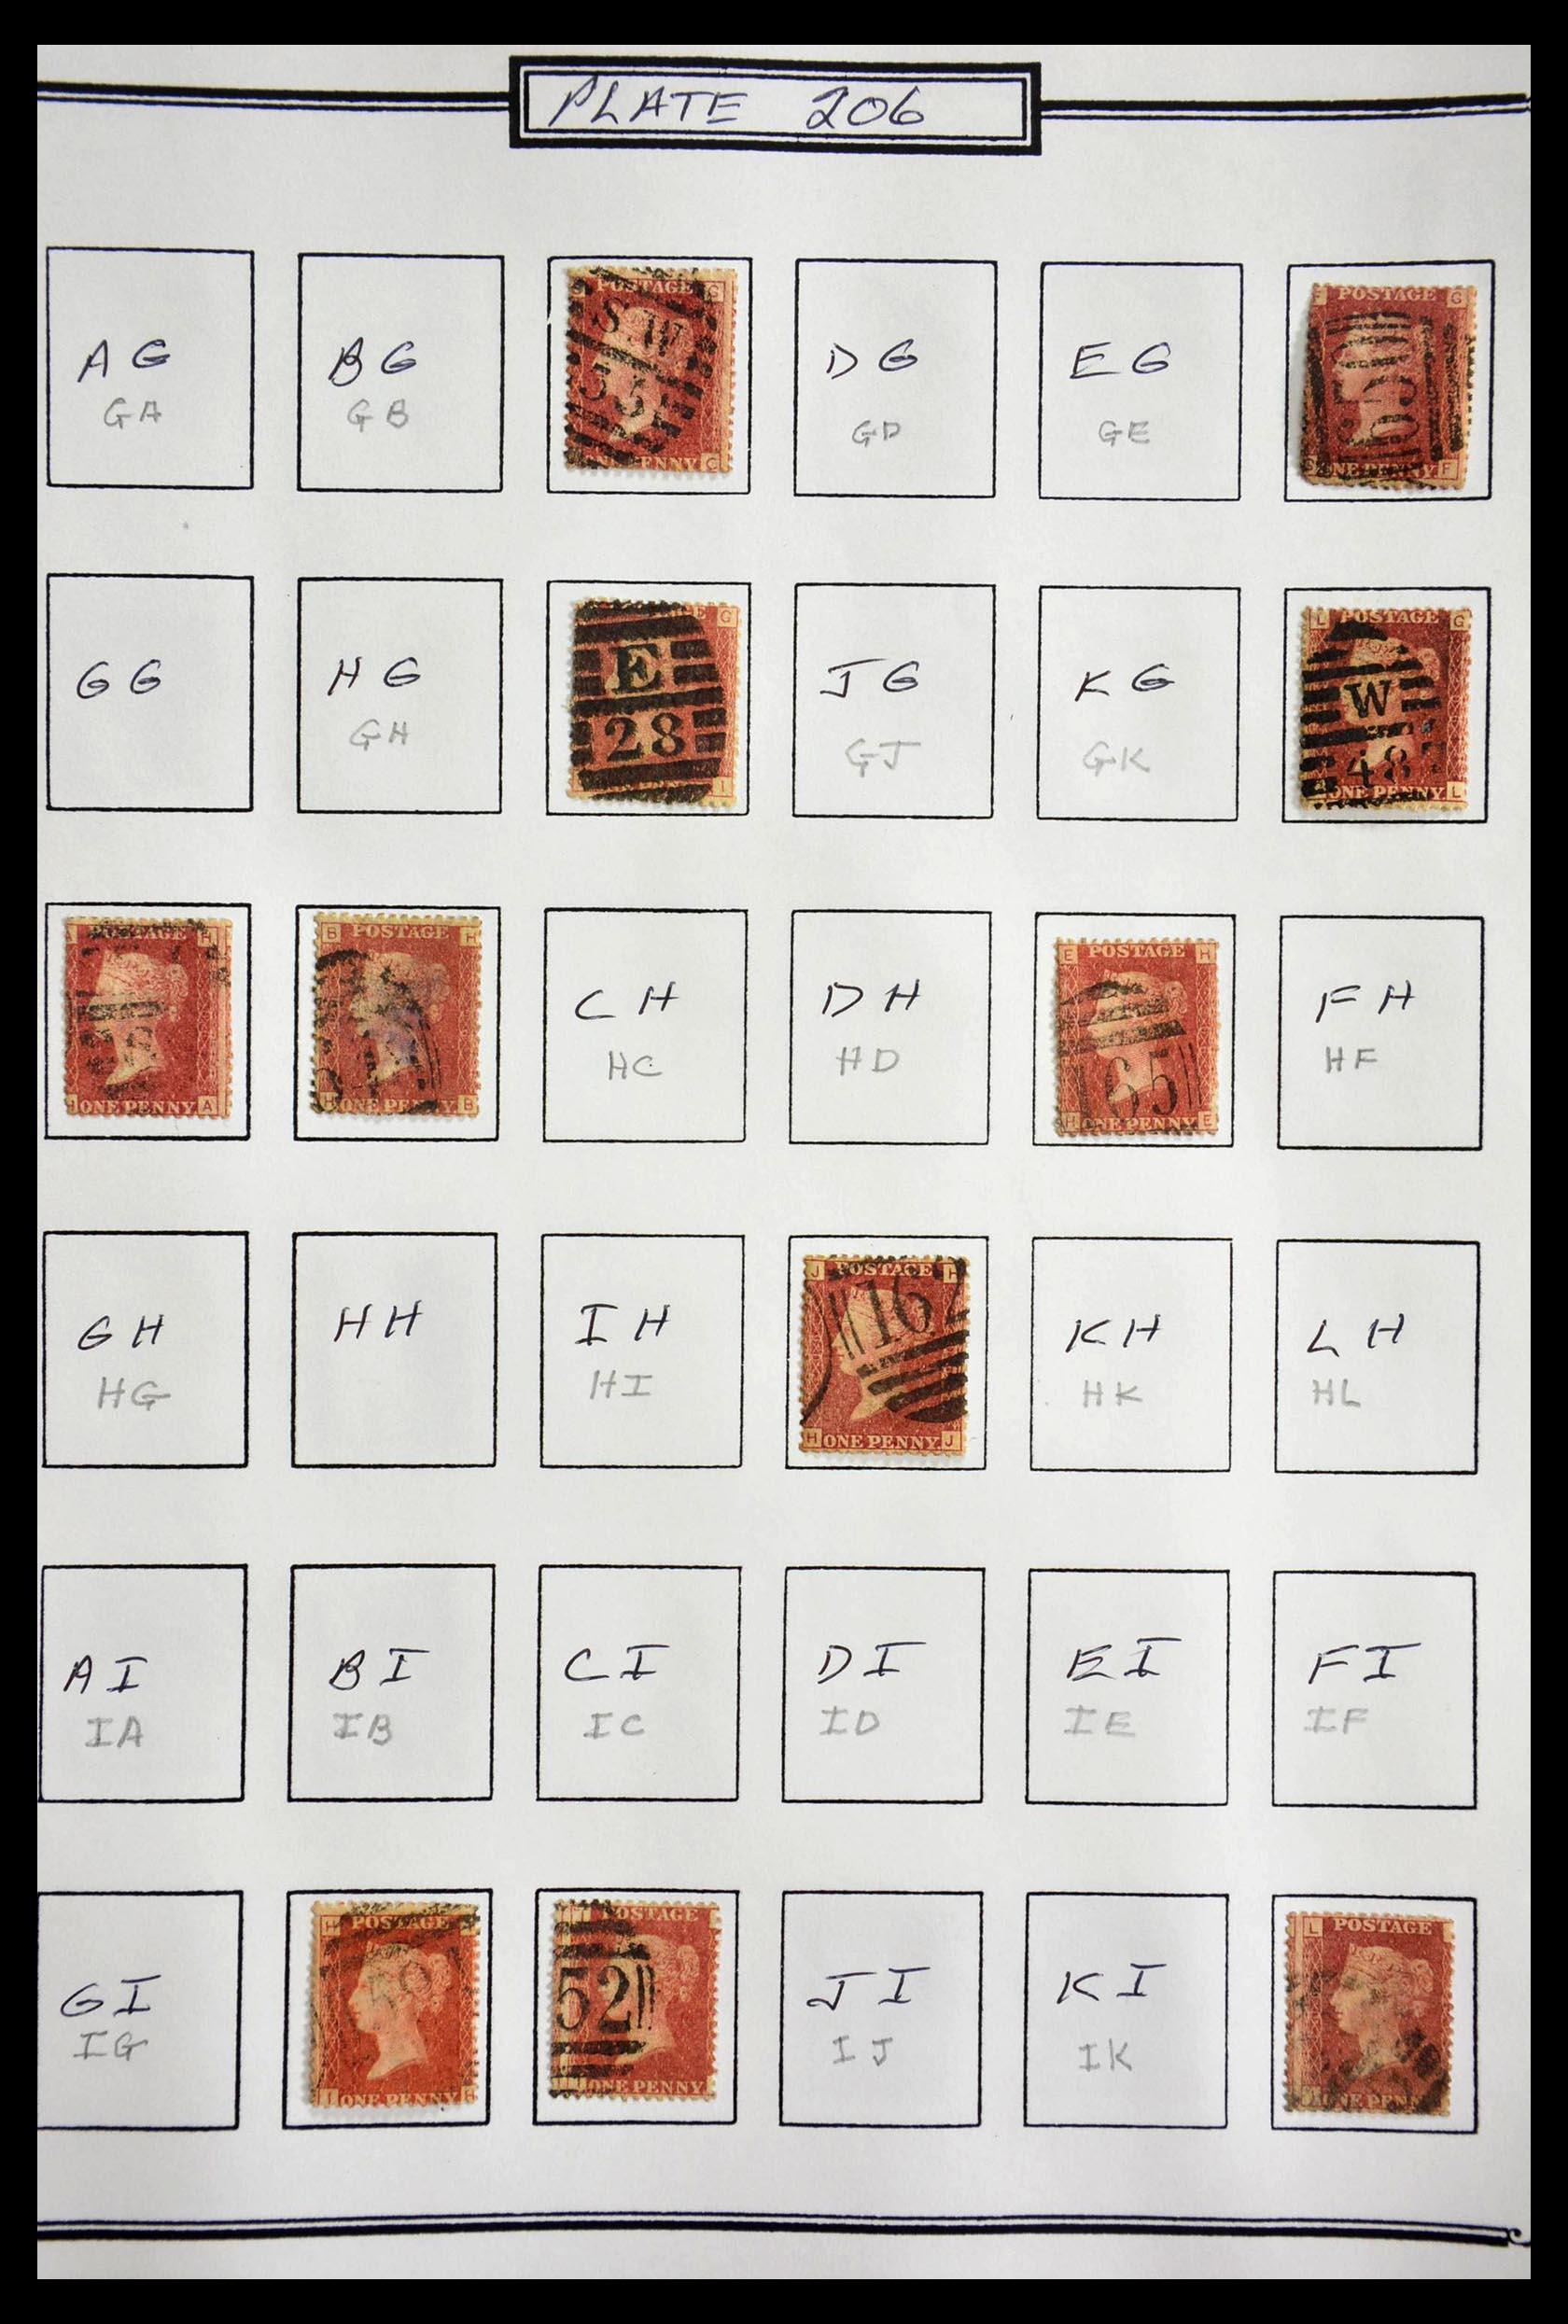 PLATE 206
AG BG POSTAGE G DG EG POSTAGE G
GA GB SW GD GE 650
33
PENNY C ONE PENNY F
GG HG G JG KG L POSTAGE G
GH E GJ GK W
28 48
I ONE PENNY L
POSTAGE H B POSTAGE H CH DH E POSTAGE H FH
HC HD 165 HF
ONE PENNY A H ONE PENNY B H ONE PENNY E
GH HH IH J POSTAGE H KH LH
HG HI 167 HK HL
H ONE PENNY J
AI BI CI DI EI FI
IA IB IC ID IE IF
GI H POSTAGE I POSTAGE JI KI L POSTAGE
IG 50 52 IJ IK
I ONE PENNY ONE PENNY ONE PENNY